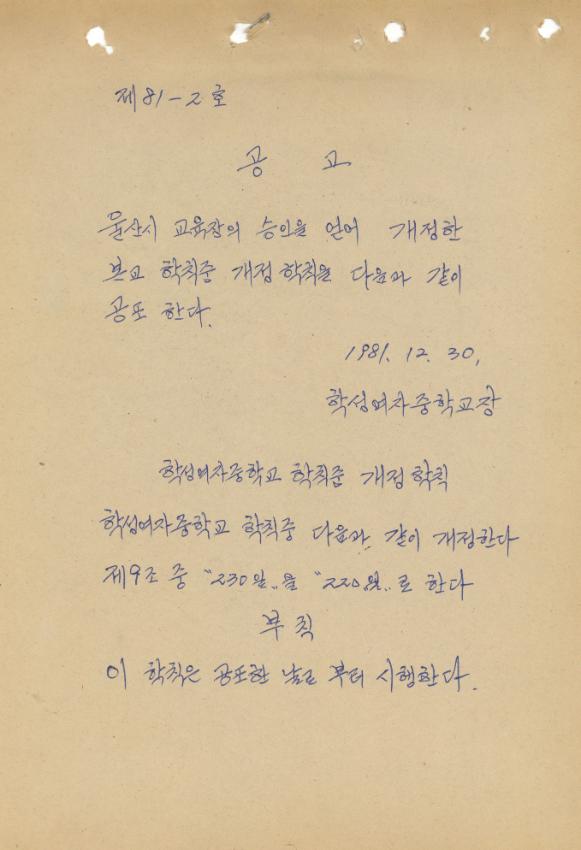 제81-2호
공 고
울산시 교육장의 승인을 얻어 개정한
본교 학칙중 개정 학칙을 다음과 같이
공포 한다.
1981. 12. 30.
학성여자중학교장
학성여자중학교 학칙준 개정 학칙
학성여자중학교 학칙중 다음과 같이 개정한다
제9조 중 "230일"을 "220일"로 한다
부칙
이 학칙은 공포한 날로 부터 시행한다.